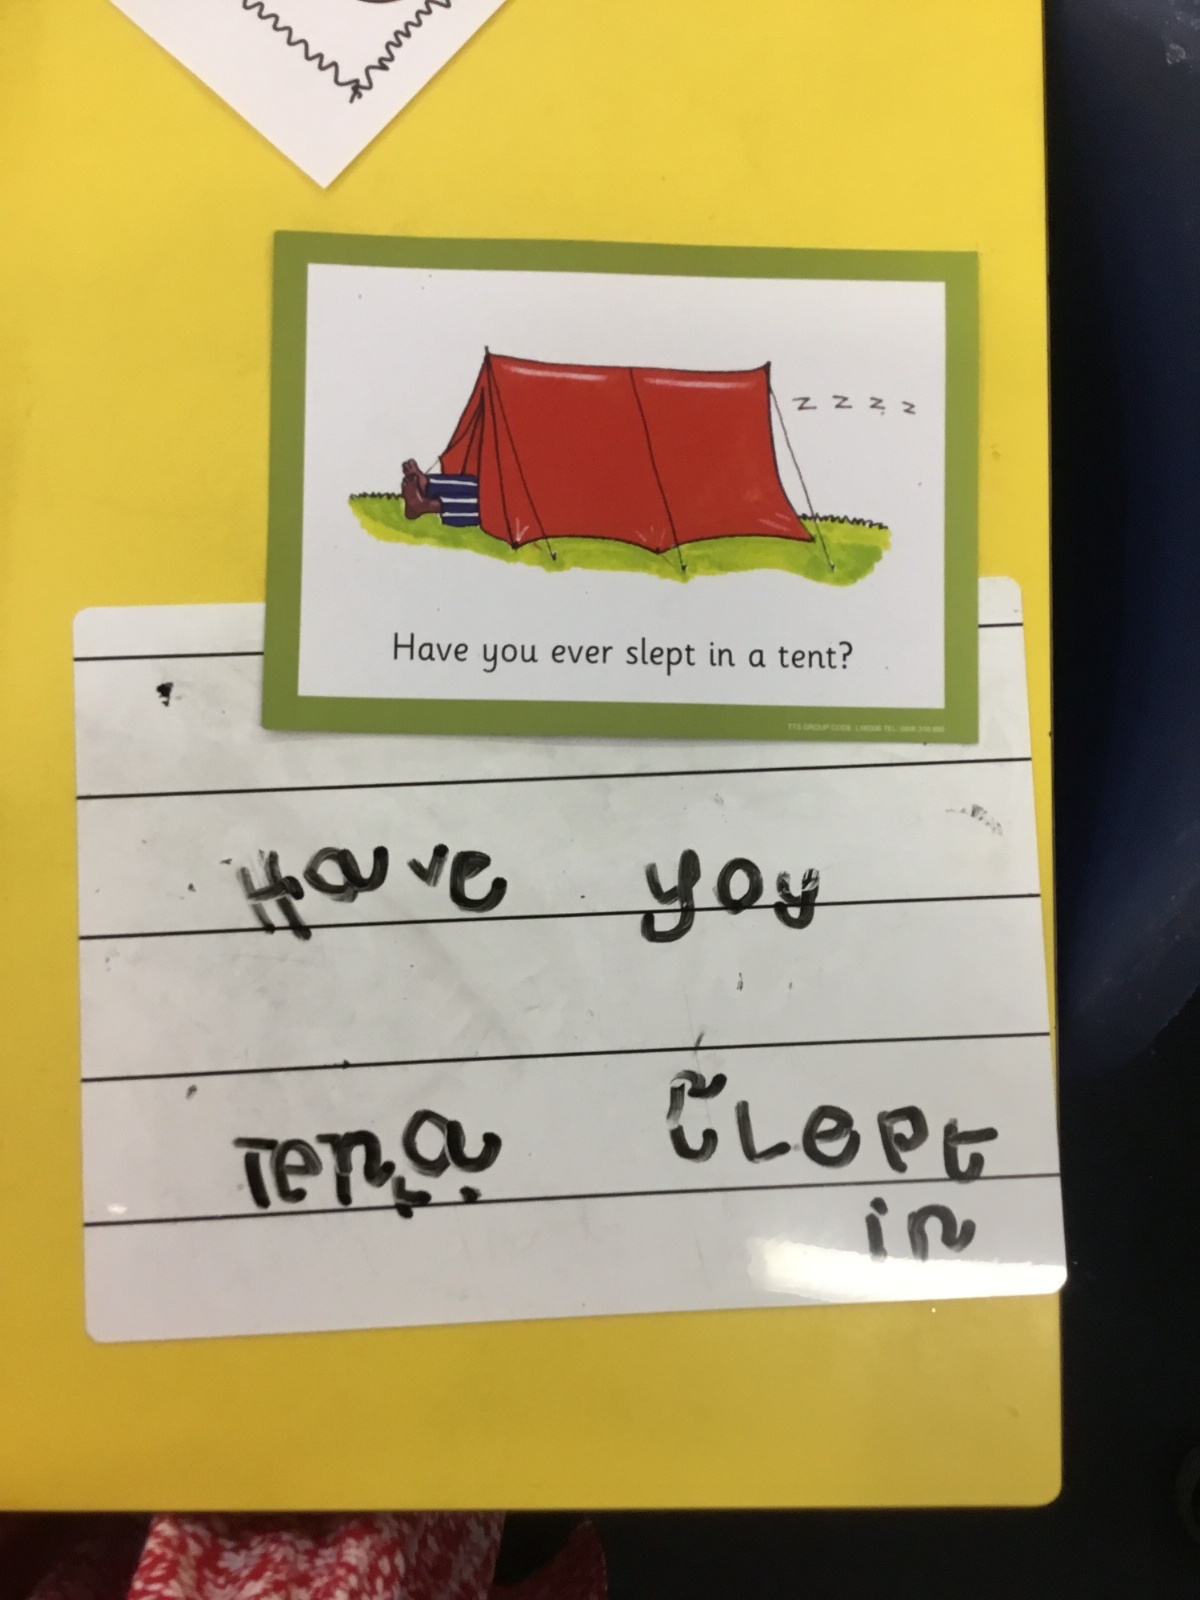 z z z z
Have you ever slept in a tent?
Have yoy
Ten a slept
in